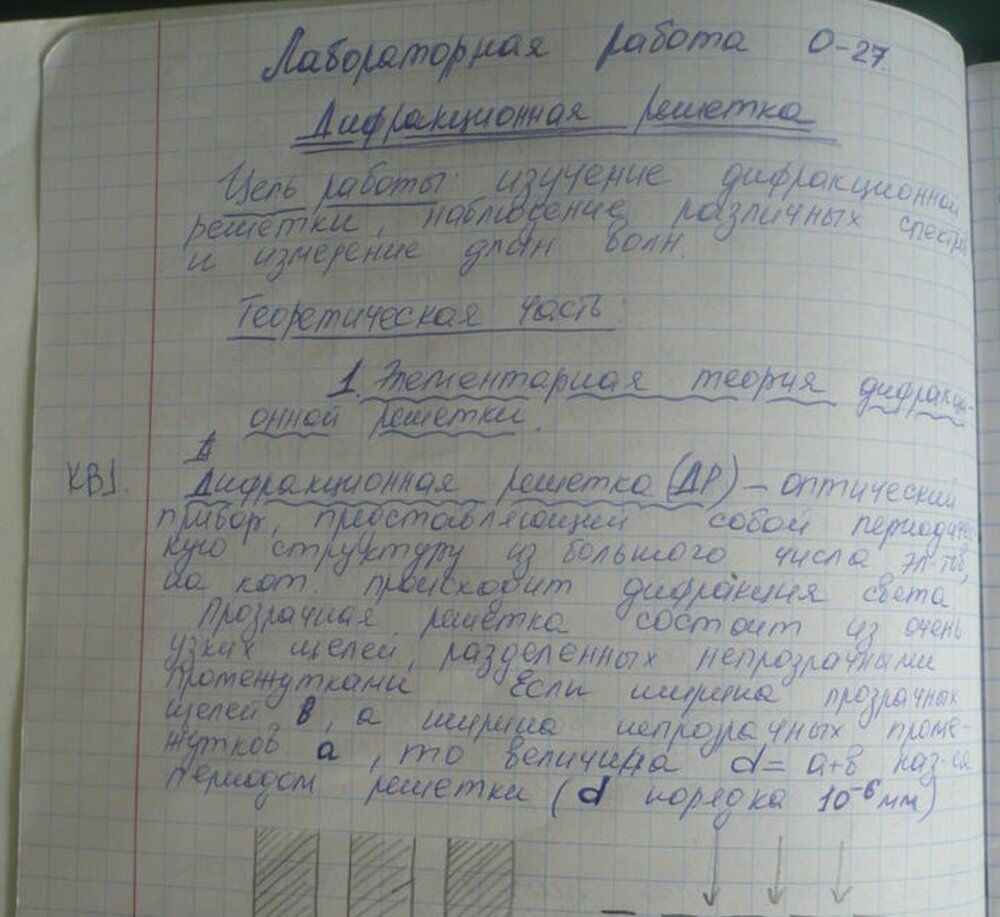 Лабораторная работа О-27.
Дифракционная решетка
Цель работы: изучение дифракционной
решетки, наблюдение различных спектров
и измерение длин волн.
Теоретическая часть:
1. Элементарная теория дифракци-
онной решетки.
КВ1.
Дифракционная решетка (ДР) – оптический
прибор, представляющий собой периодичес
кую структуру из большого числа эл-тов,
на кот. происходит дифракция света.
Прозрачная решетка состоит из очень
узких щелей, разделенных непрозрачными
промежутками. Если ширина прозрачных
щелей в, а ширина непрозрачных проме-
жутков а, то величина d = а+в наз-ся
периодом решетки (d порядка 10⁻⁶ мм)